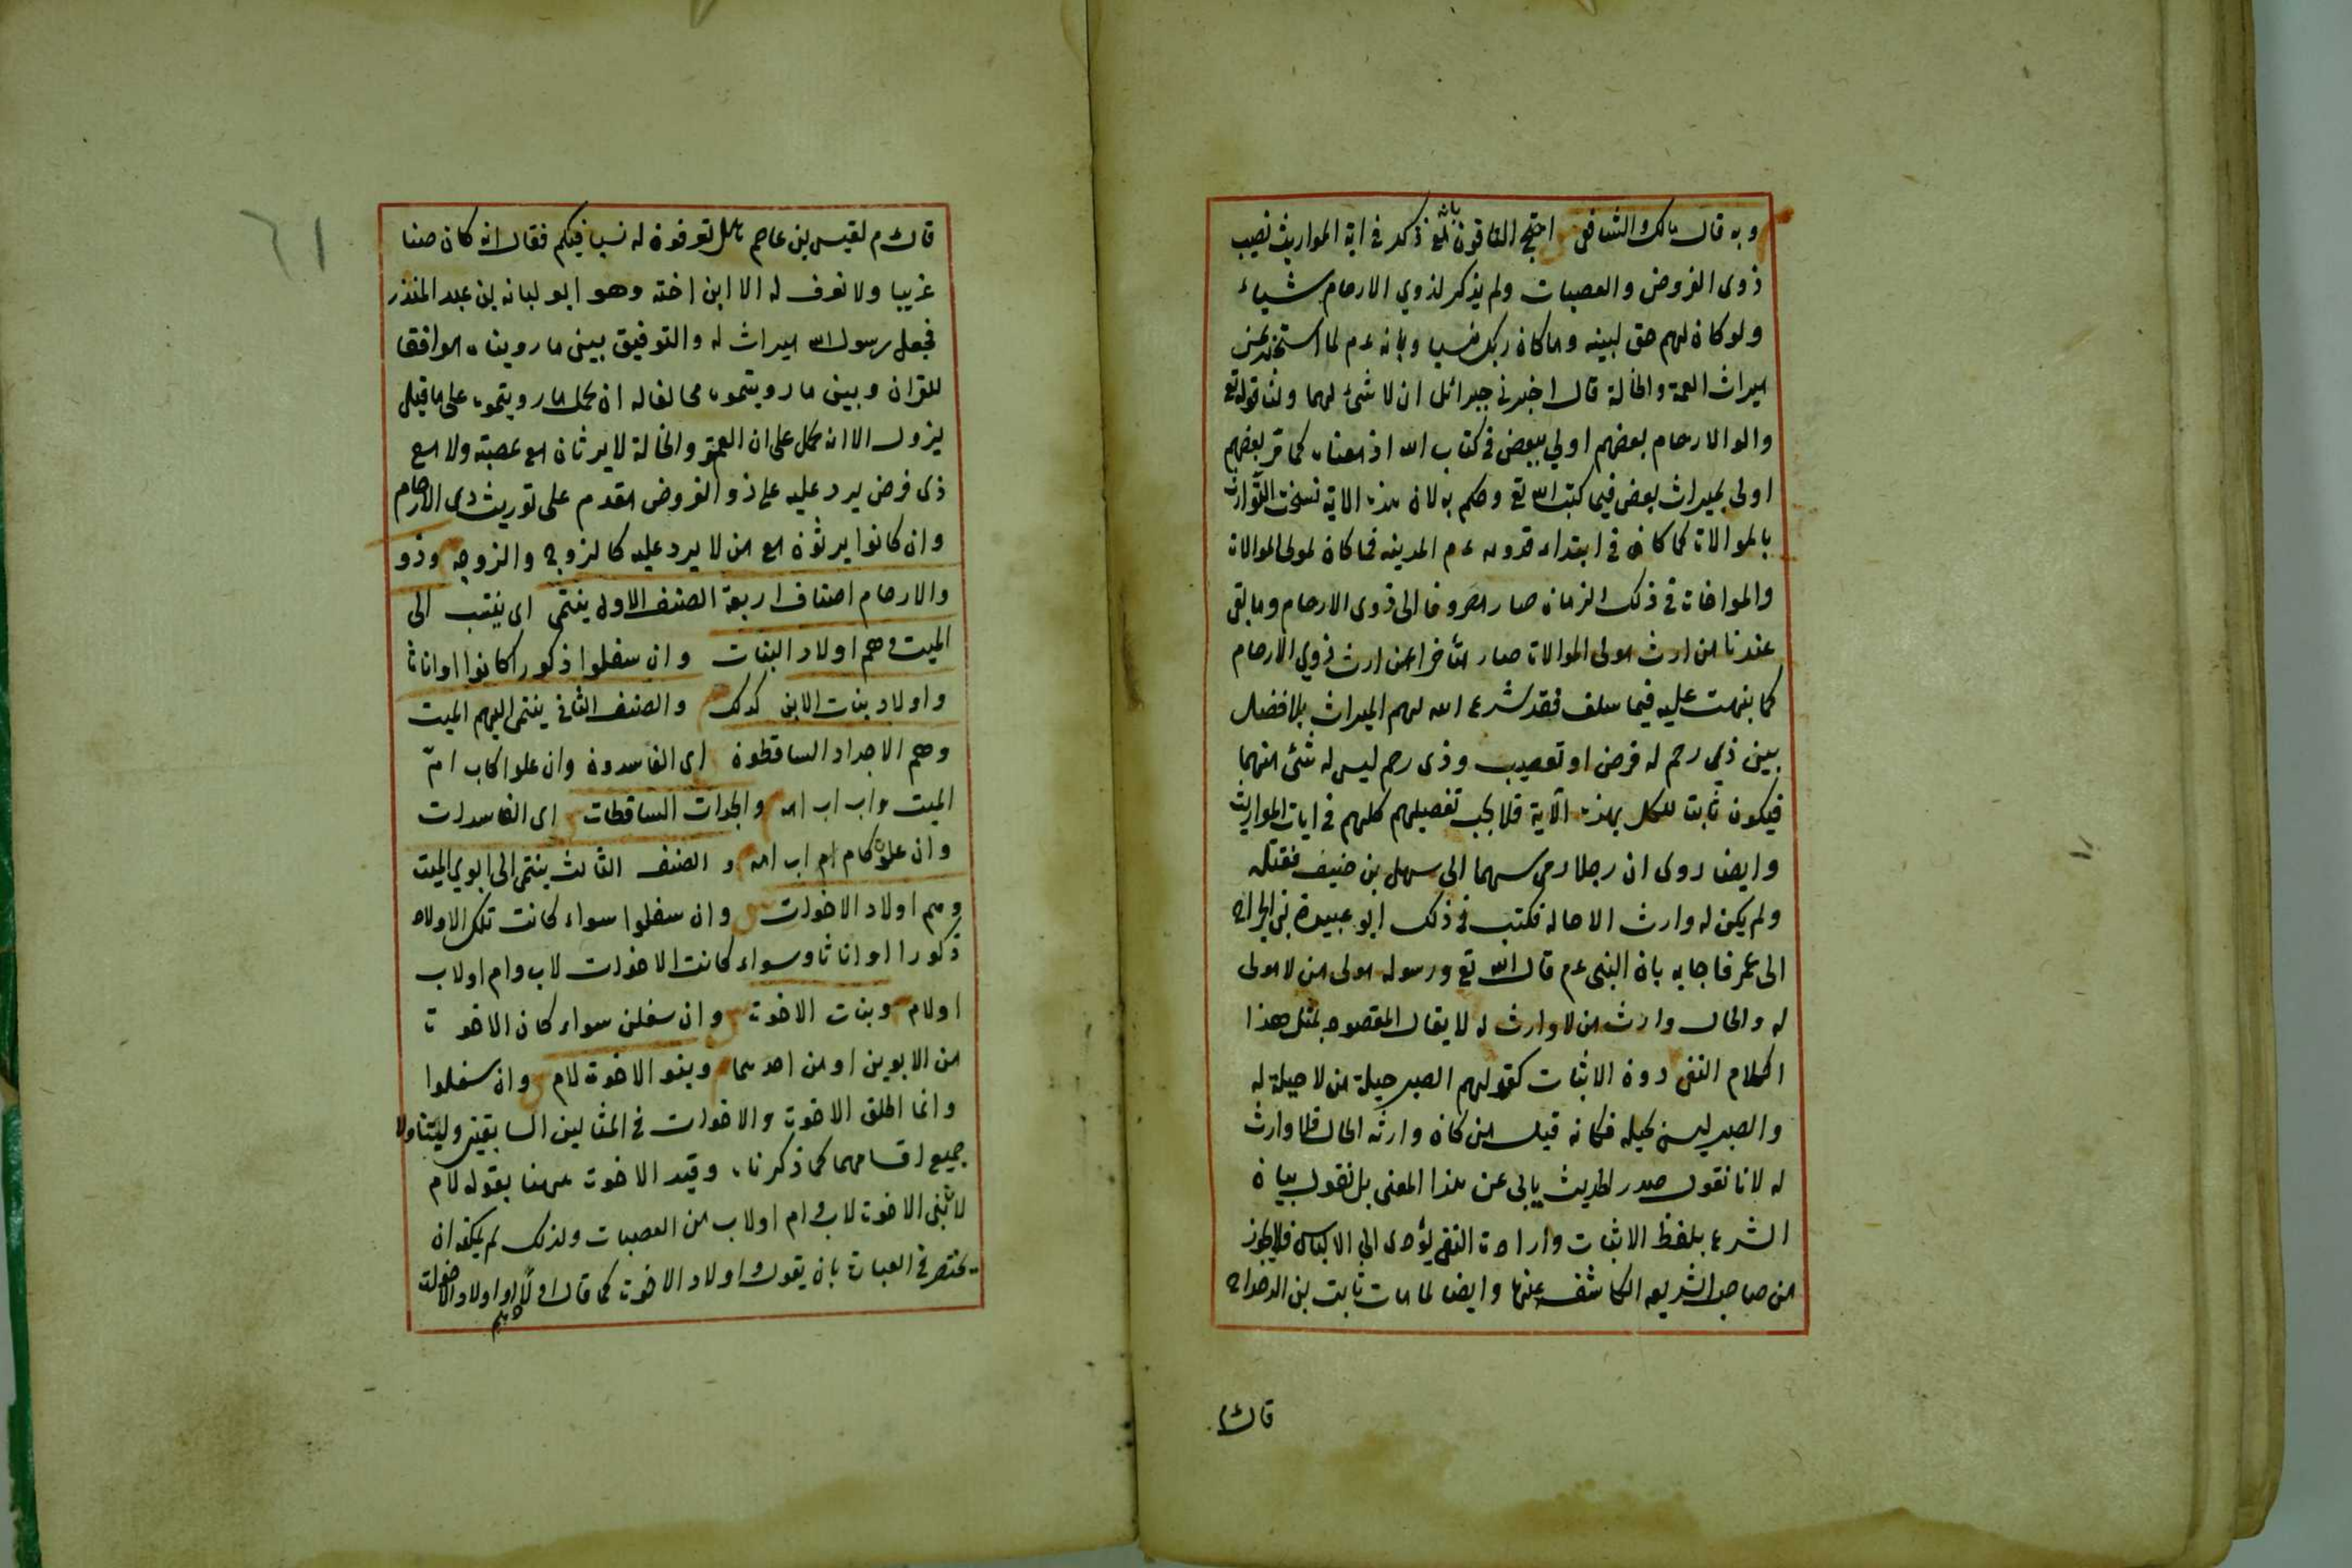 وبه قال مالك والشافعي احتج النافون بانه تع ذكر في اية المواريث نصيب
ذوى الفروض والعصبات ولم يذكر لذوي الارحام شياء
ولو كان لهم حق لبينه وما كان ربك نسيا وبانه ءم لما استخبر عن
ميراث العمة والخالة قال اخبرني جبرائل ان لا شئ لهما ولنا قوله تع
والوا الارحام بعضهم اولي ببعض في كتاب الله اذ معناه كما مر بعضهم
اولى بميراث بعض فيما كتب الله تع وحكم به لان هذه الاية نسخت التوارث
بالموالات كما كان في ابتداء قدومه ءم المدينه فما كان لمولى الموالات
والمواخات في ذلك الزمان صار مصروفا الى ذوى الارحام وما بقى
عندنا من ارث مولى الموالات صار متأخرا عن ارث ذوي الارحام
كما بنهت عليه فيما سلف فقد شرع الله لهم الميراث بلا فضل
بين ذي رحم له فرض او تعصيب وذى رحم ليس له شئ منهما
فيكون ثابت للكل بهذه الآية فلا يجب تفصيلهم كلهم في ايات المواريث
وايضا روى ان رجلا رمى سهما الى سهل بن حنيف فقتله
ولم يكن له وارث الا خاله فكتب في ذلك ابو عبيدة بن الجراح
الى عمر فاجابه بان النبى ءم قال الله تع ورسوله مولى من لا مولى
له والخال وارث من لا وارث له لا يقال المقصود بمثل هذا
الكلام النفى دون الاثبات كقولهم الصبر حيلة من لا حيلة له
والصبر ليس بحيله فكانه قيل من كان وارثه الخال فلا وارث
له لانا نقول صدر الحديث يابى عن هذا المعنى بل نقول بيان
الشرع بلفظ الاثبات وارادت النفى يؤدى الي الالباس فلا يجوز
من صاحب الشريعه الكاشف عنها وايضا لما مات ثابت بن الدحداح
قال م
قال م لقيس بن عاصم هل تعرفون له نسبا فيكم فقال انه كان منا
غريبا ولا نعرف له الا ابن اخته وهو ابو لبانه بن عبد المنذر
فجعل رسول الله ميراث له والتوفيق بين ما رويناه موافقا
للقران وبين ما رويتموه مخالفا له ان يحمل ما رويتموه على ما قبل
نزول الا انه يحمل على ان العمة والخالة لا يرثان مع عصبته ولا مع
ذى فرض يرد عليه على ذو الفروض مقدم على توريث ذى الارحام
وان كانوا يرثون مع من لا يرد عليه كالزوج والزوجه وذو
والارحام اصناف اربعة الصنف الاول ينتمى اى ينتسب الى
الميت وهم اولاد البنات وان سفلوا ذكورا كانوا او اناثا
واولاد بنات الابن كذلك والصنف الثاني ينتمى اليهم الميت
وهم الاجداد الساقطون اى الفاسدون وان علوا كاب امّ
الميت واب اب امه والجدات الساقطات اى الفاسدات
وان علون كام ام اب امه و الصنف الثالث ينتمى الى ابوي الميت
وهم اولاد الاخوات وان سفلوا سواء كانت تلك الاولاد
ذكورا او اناثا وسواء كانت الاخوات لاب وام او لاب
او لام وبنات الاخوة وان سفلن سواء كان الاخوة
من الابوين او من احدهما وبنو الاخوت لام وان سفلوا
وانما اطلق الاخوة والاخوات في المثالين السابقين وليتناولا
جميع اقسامهما كما ذكرناه وقيد الاخوت ههنا بقوله لام
لان بنى الاخوت لاب وام او لاب من العصبات ولذلك لم يمكنه ان
يختصر في العبارة بان يقول واولاد الاخوت كما قال اولا واولاد الاخوات